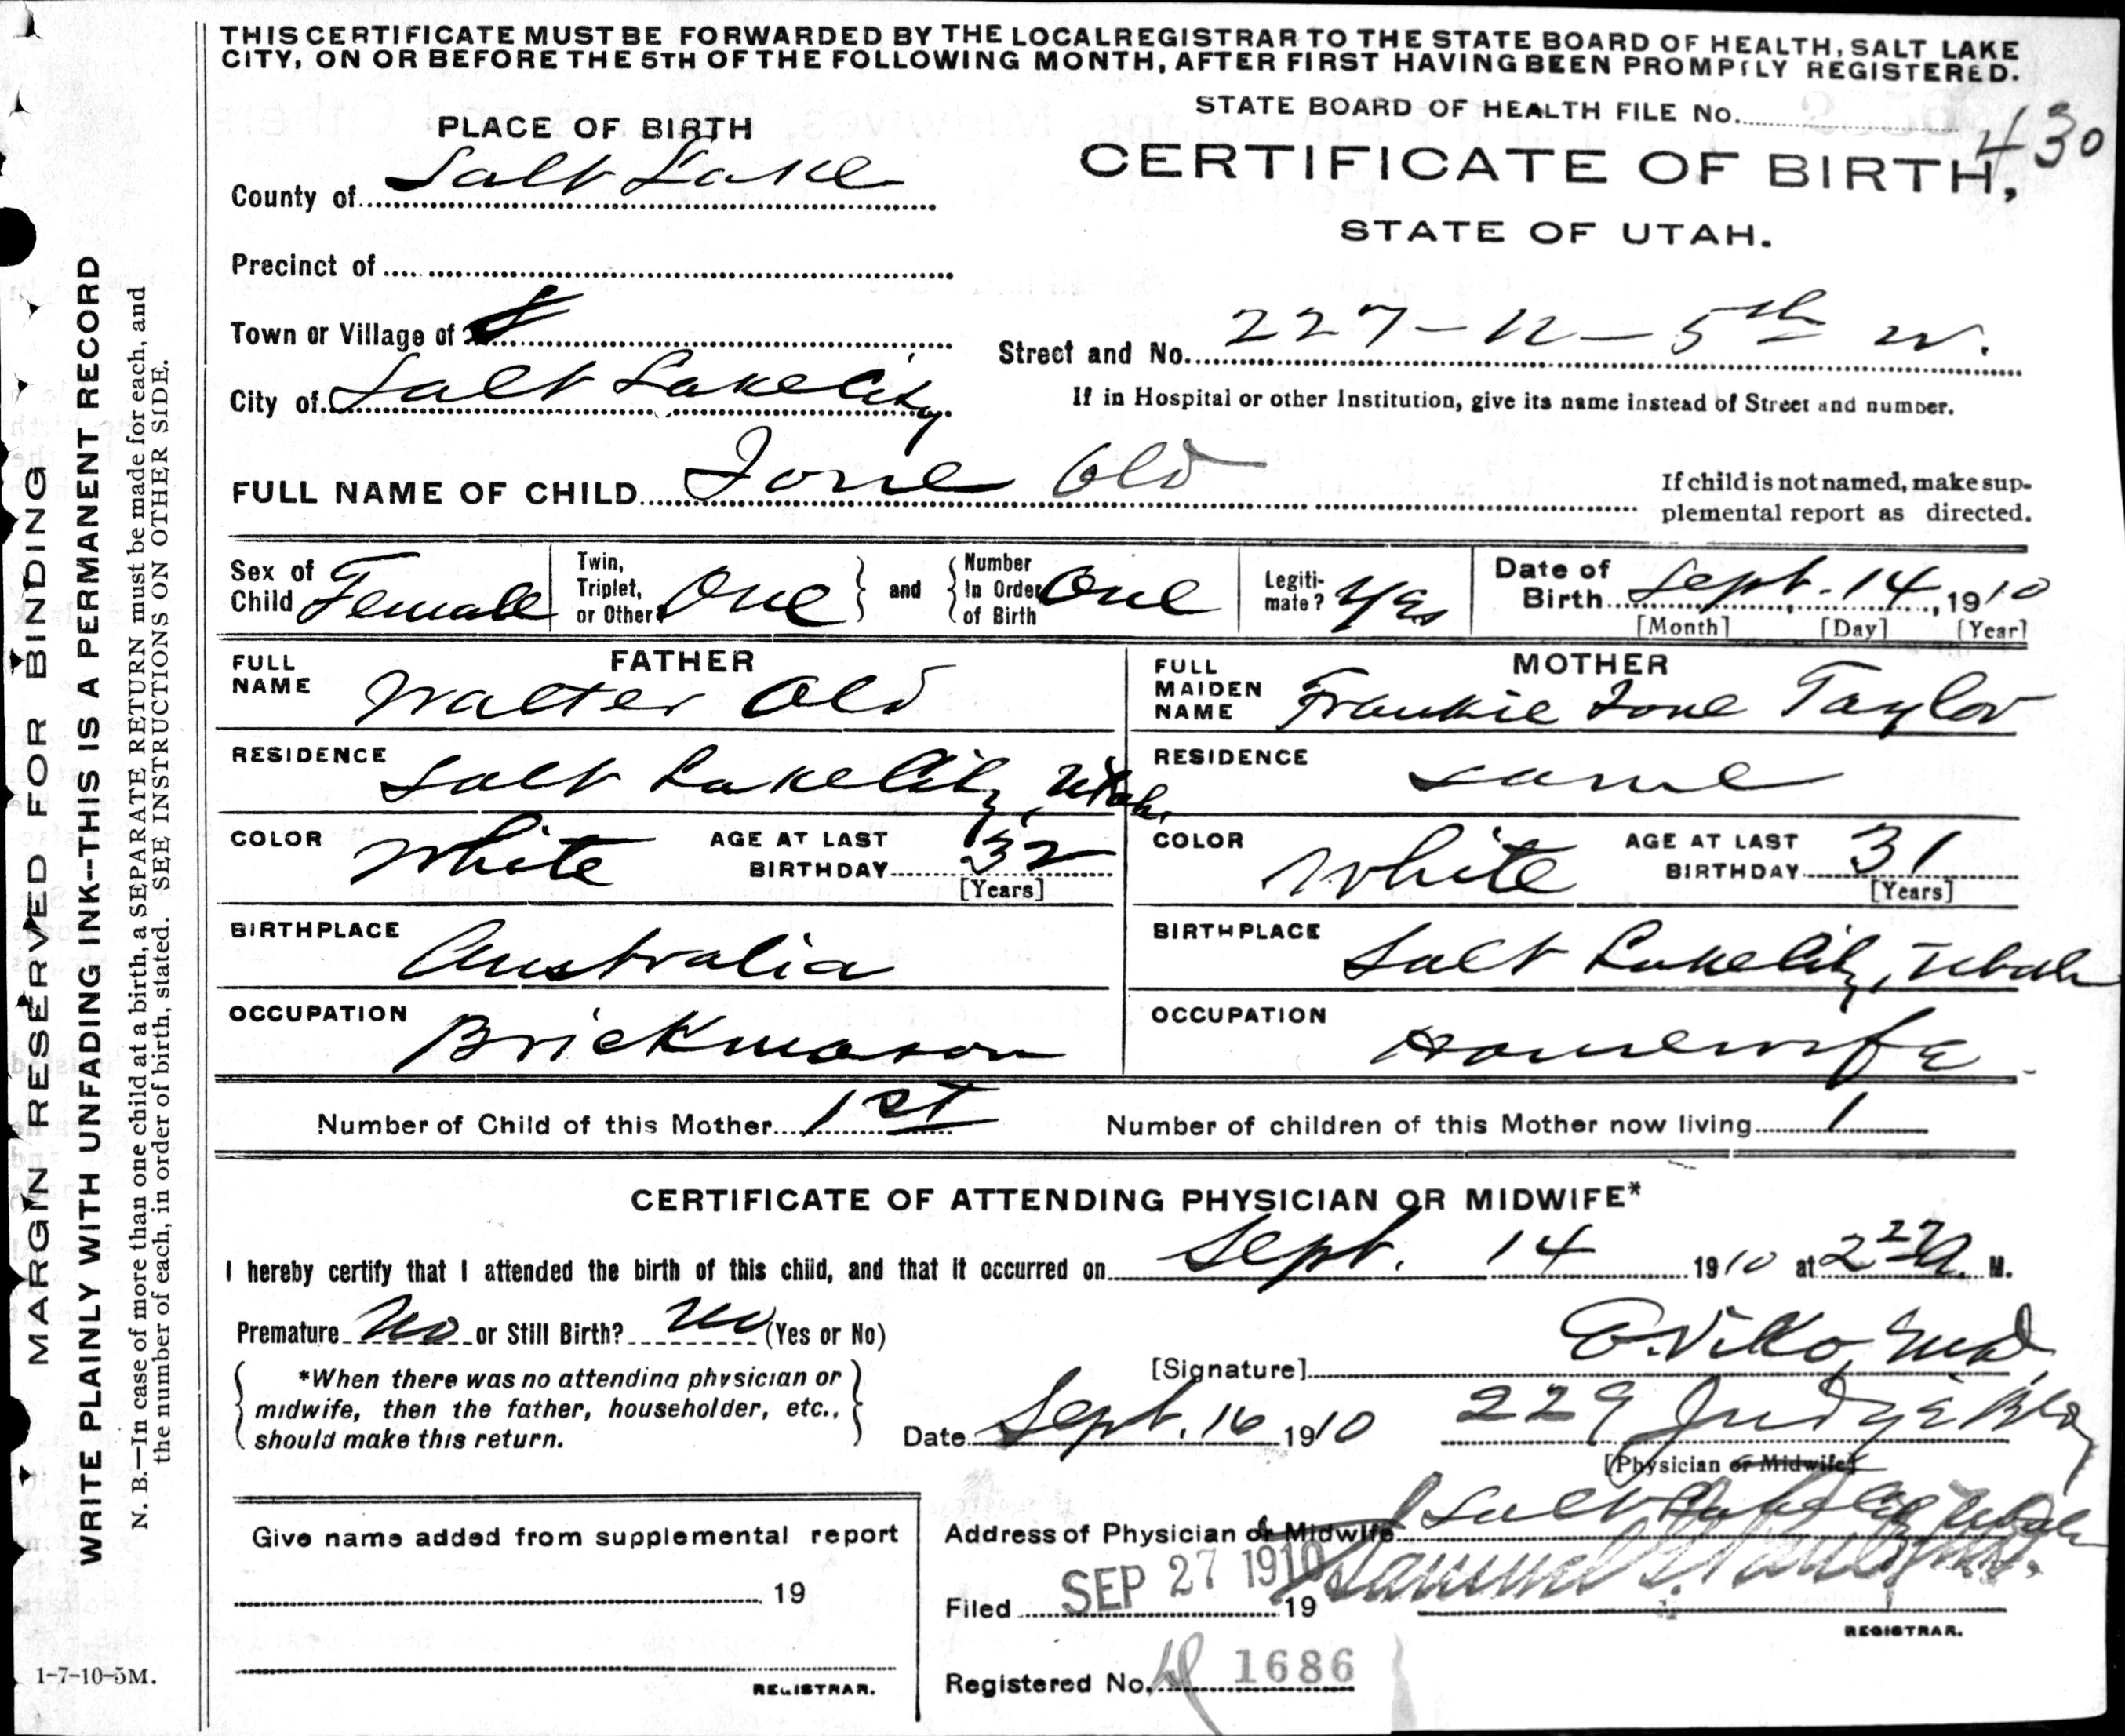 THIS CERTIFICATE MUST BE FORWARDED BY THE LOCAL REGISTRAR TO THE STATE BOARD OF HEALTH, SALT LAKE
CITY, ON OR BEFORE THE 5TH OF THE FOLLOWING MONTH, AFTER FIRST HAVING BEEN PROMPTLY REGISTERED.
STATE BOARD OF HEALTH FILE No. 430
PLACE OF BIRTH
CERTIFICATE OF BIRTH,
STATE OF UTAH.
County of Salt Lake
Precinct of
Town or Village of
Street and No. 227 - N - 5th W.
City of Salt Lake City
If in Hospital or other Institution, give its name instead of Street and number.
FULL NAME OF CHILD Ione Old
If child is not named, make sup-
plemental report as directed.
Sex of Child Female
Twin, Triplet, or Other One } and { Number In Order of Birth One
Legiti-mate? Yes
Date of Birth Sept. 14, 1910
[Month] [Day] [Year]
FATHER
FULL NAME Walter Old
RESIDENCE Salt Lake City, Utah.
COLOR White AGE AT LAST BIRTHDAY 32
[Years]
BIRTHPLACE Australia
OCCUPATION Brickmason
MOTHER
FULL MAIDEN NAME Frankie Ione Taylor
RESIDENCE same
COLOR White AGE AT LAST BIRTHDAY 31
[Years]
BIRTHPLACE Salt Lake City, Utah
OCCUPATION Housewife
Number of Child of this Mother 1st Number of children of this Mother now living 1
CERTIFICATE OF ATTENDING PHYSICIAN OR MIDWIFE*
I hereby certify that I attended the birth of this child, and that it occurred on Sept. 14 1910 at 2 27 A. M.
Premature No or Still Birth? No (Yes or No)
*When there was no attending physician or
midwife, then the father, householder, etc.,
should make this return.
[Signature] E. Viko, M.D.
Date Sept. 16 1910 229 Judge Bldg
[Physician or Midwife]
Address of Physician or Midwife Salt Lake City Utah
Filed SEP 27 1910 19 Samuel G.
REGISTRAR.
Registered No. 1686
Give name added from supplemental report
19
REGISTRAR.
1-7-10-5M.
MARGIN RESERVED FOR BINDING
WRITE PLAINLY WITH UNFADING INK--THIS IS A PERMANENT RECORD
N. B.—In case of more than one child at a birth, a SEPARATE RETURN must be made for each, and
the number of each, in order of birth, stated. SEE INSTRUCTIONS ON OTHER SIDE.